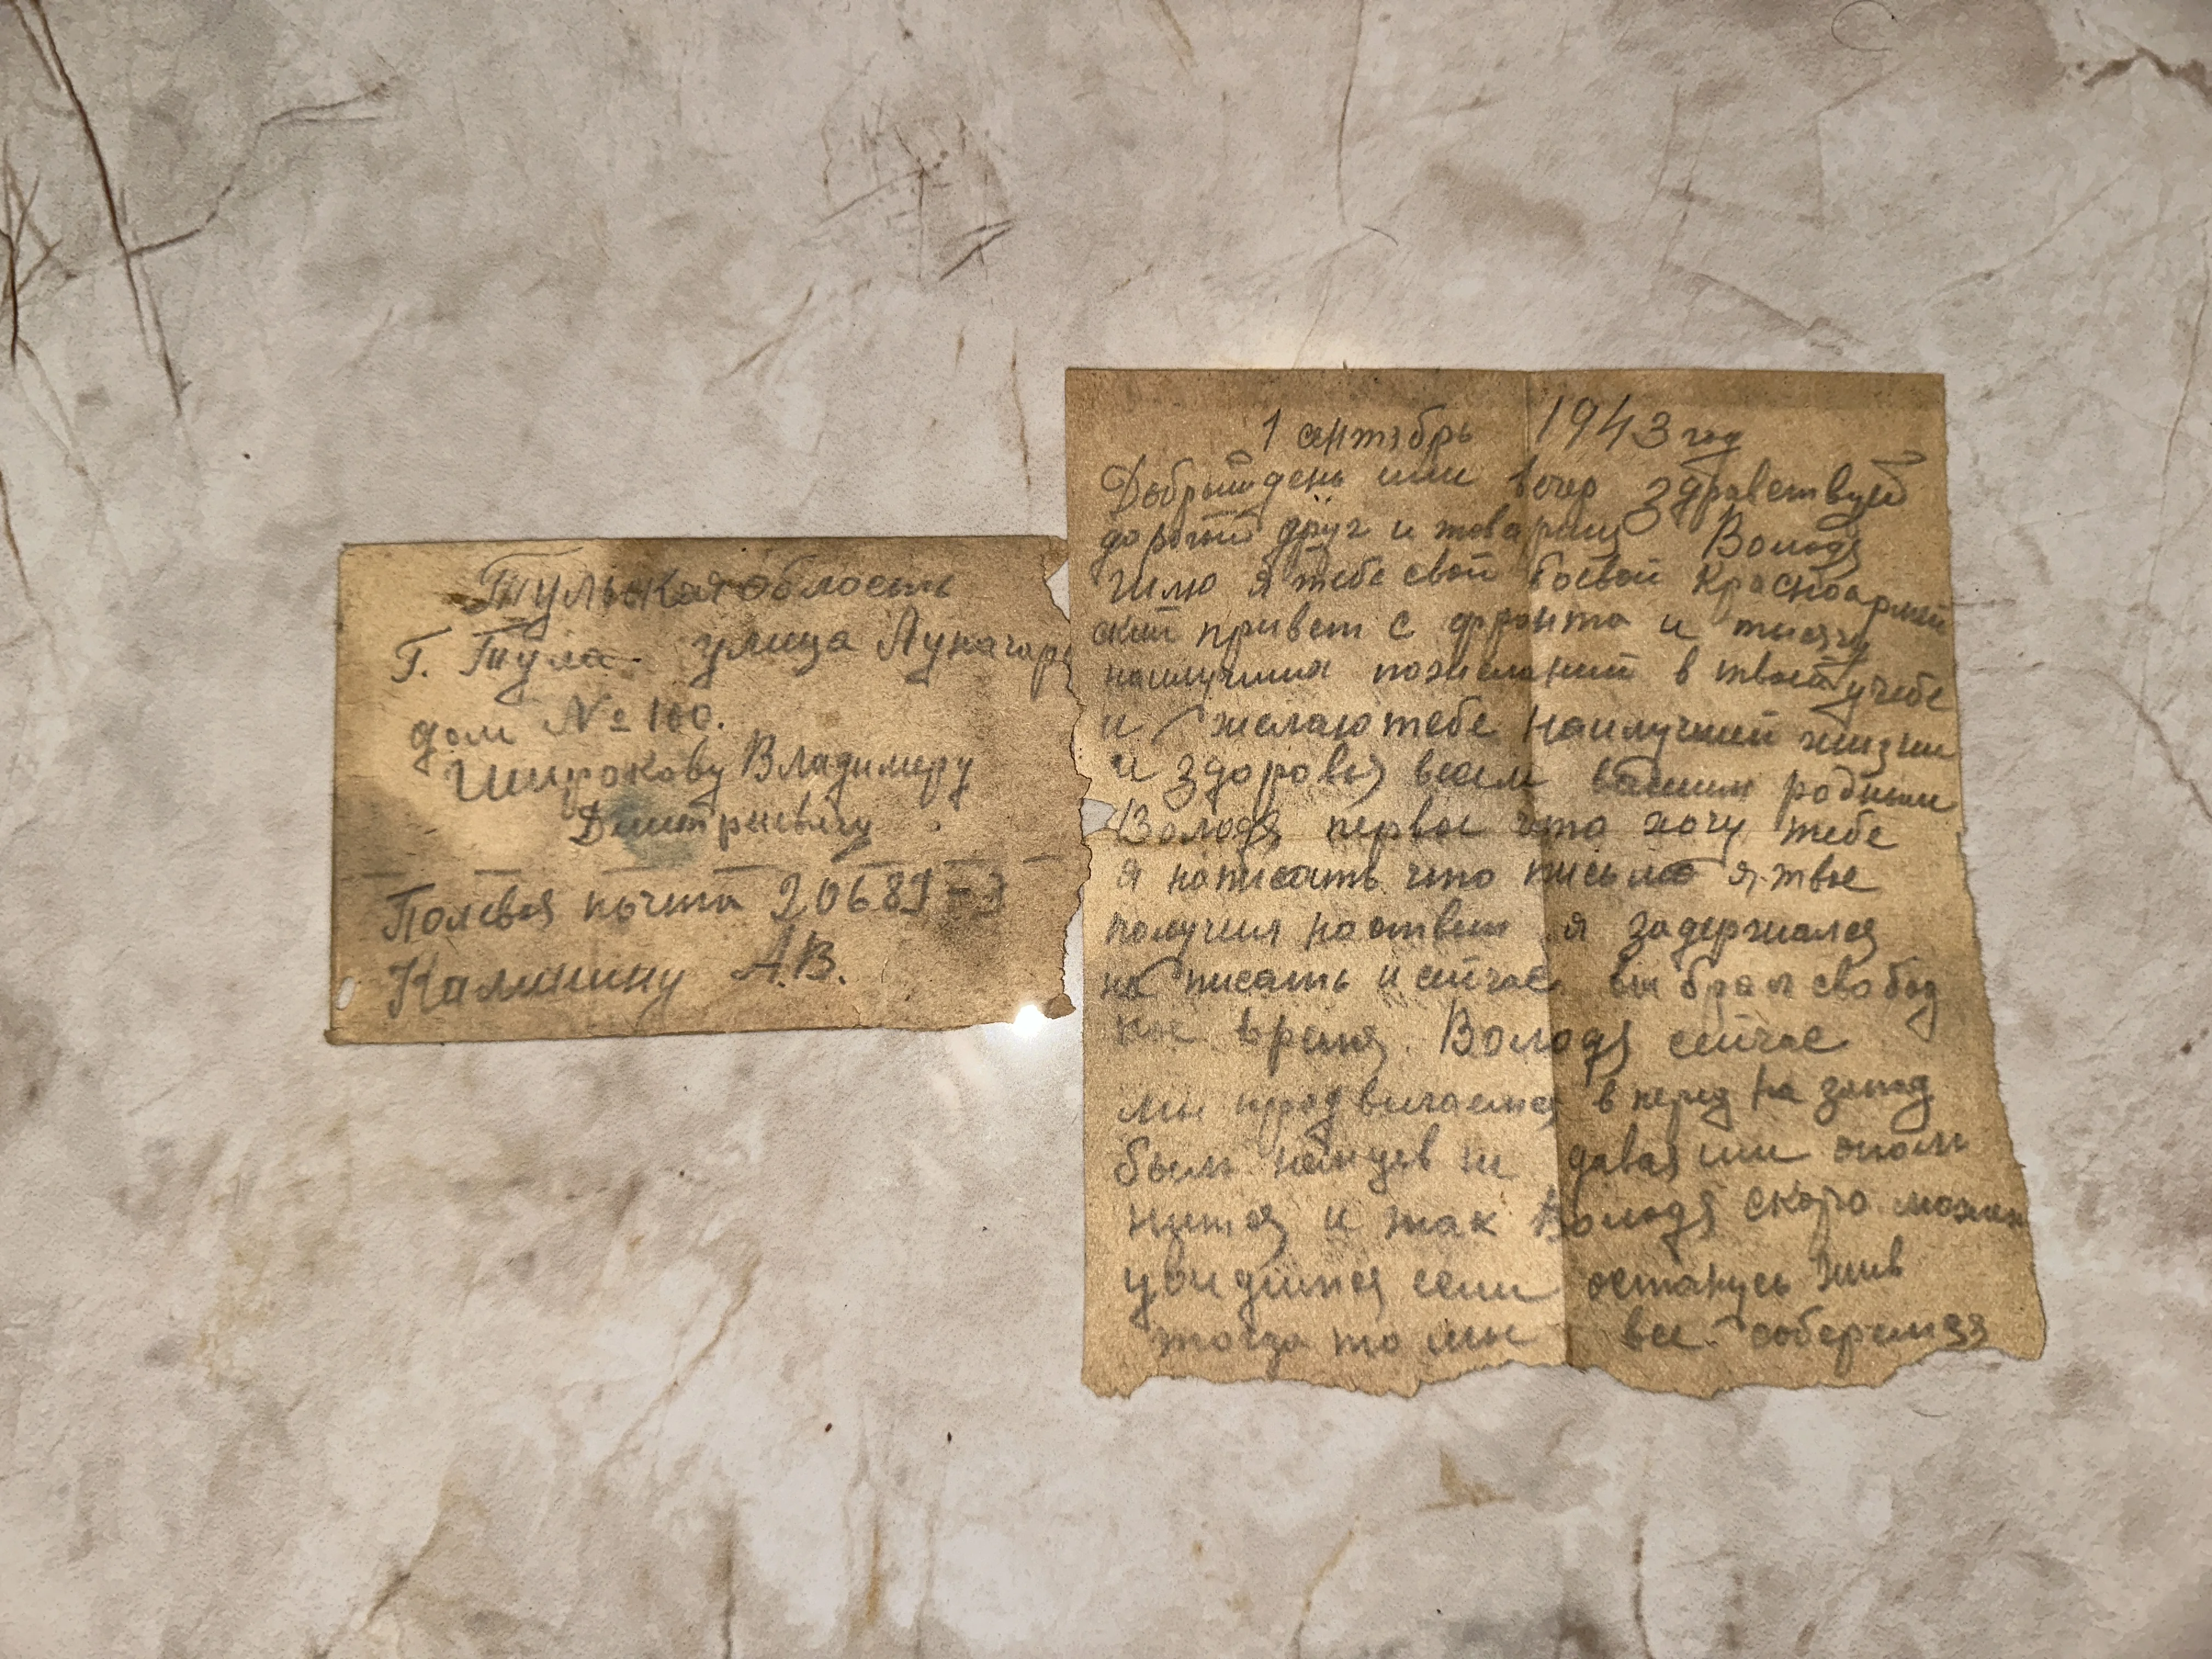 Тульская область
Г. Тула. улица Луначарс
дом № 100.
Широкову Владимиру
Дмитриевичу
Полевая почта 20689-З
Калинину А.В.
1 сентябрь 1943 год
Добрый день или вечер здравствуй
дорогой друг и товарищ Володя
Шлю я тебе свой боевой красноармей
ский привет с фронта и тысячу
наилучших пожеланий в твоей учебе
и желаю тебе наилучшей жизни
и здоровья всем вашим родным
Володя первое что хочу тебе
я написать что письмо я твое
получил но ответ я задержался
на писать и сейчас вы брал свобод
ное время. Володя сейчас
мы продвигаемся в перед на запад
бьем немцев не давая им
и так Володя скоро может
увидимся если останусь жив
тогда то мы все соберемся